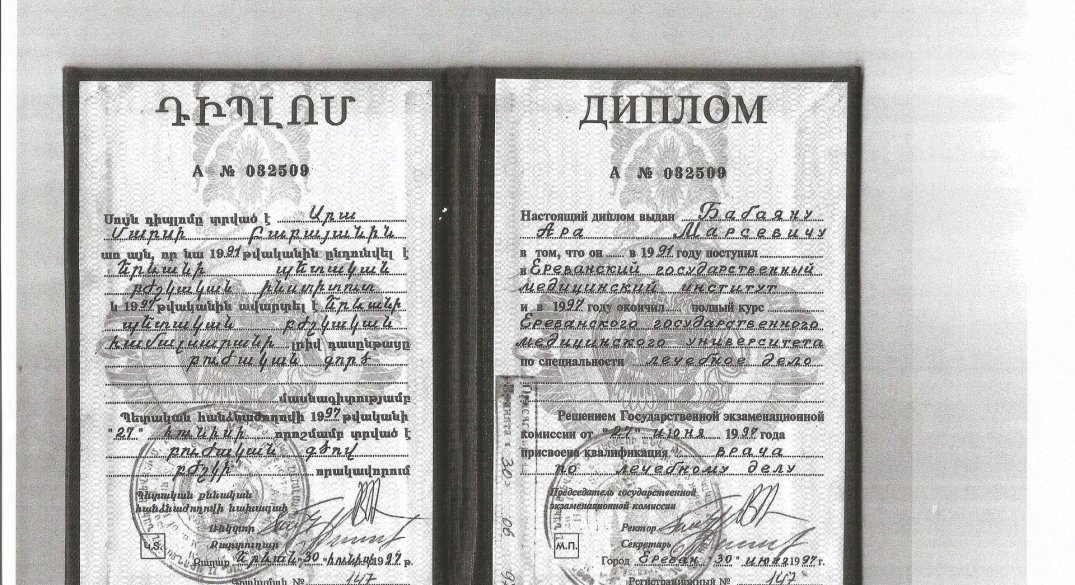 ԴԻՊԼՈՄ
A № 032509
Սույն դիպլոմը տրված է Արա
Մարսի Բաբայանին
առ այն, որ նա 1991 թվականին ընդունվել է
Երևանի պետական
բժշկական ինստիտուտ
և 1997 թվականին ավարտել է Երևանի
պետական բժշկական
համալսարանի լրիվ դասընթացը
բուժական գործ
մասնագիտությամբ
Պետական հանձնաժողովի 1997 թվականի
"27" հունիսի որոշմամբ տրված է
բուժական գծով
բժշկի որակավորում
Պետական քննական
հանձնաժողովի նախագահ
Ռեկտոր
Քարտուղար
Կ.Տ.
Քաղաք Երևան 30 հունիսի 1997 թ.
Գրանցման № 147
ДИПЛОМ
А № 032509
Настоящий диплом выдан Бабаяну
Ара Марсевичу
в том, что он в 1991 году поступил
в Ереванский государственный
медицинский институт
и в 1997 году окончил полный курс
Ереванского государственного
медицинского университета
по специальности лечебное дело
Решением Государственной экзаменационной
комиссии от "27" июня 1997 года
присвоена квалификация врача
по лечебному делу
Председатель государственной
экзаменационной комиссии
Ректор
Секретарь
М.П.
Город Ереван "30" июня 1997 г.
Регистрационный № 147